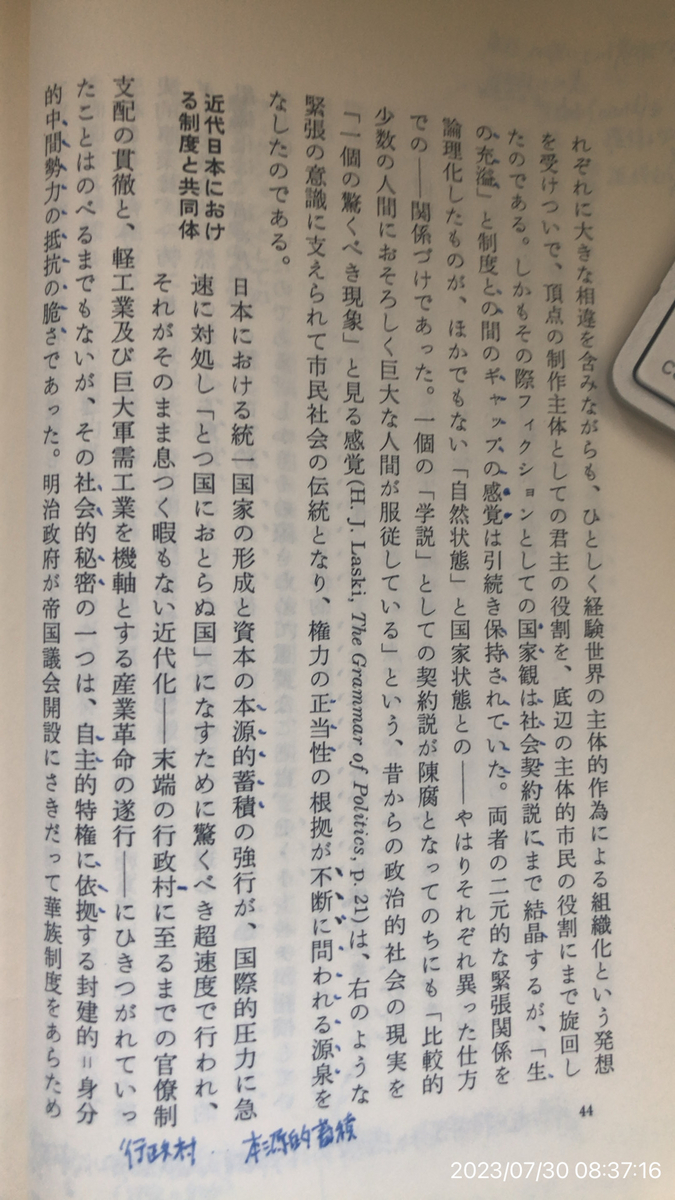 れぞれに大きな相違を含みながらも、ひとしく経験世界の主体的作為による組織化という発想
を受けついで、頂点の制作主体としての君主の役割を、底辺の主体的市民の役割にまで旋回し
たのである。しかもその際フィクションとしての国家観は社会契約説にまで結晶するが、「生
の充溢」と制度との間のギャップの感覚は引続き保持されていた。両者の二元的な緊張関係を
論理化したものが、ほかでもない「自然状態」と国家状態との――やはりそれぞれ異った仕方
での――関係づけであった。一個の「学説」としての契約説が陳腐となってのちにも「比較的
少数の人間におそろしく巨大な人間が服従している」という、昔からの政治的社会の現実を
「一個の驚くべき現象」と見る感覚(H. J. Laski, The Grammar of Politics, p. 21)は、右のような
緊張の意識に支えられて市民社会の伝統となり、権力の正当性の根拠が不断に問われる源泉を
なしたのである。
近代日本におけ
る制度と共同体
日本における統一国家の形成と資本の本源的蓄積の強行が、国際的圧力に急
速に対処し「とつ国におとらぬ国」になすために驚くべき超速度で行われ、
それがそのまま息つく暇もない近代化――末端の行政村に至るまでの官僚制
支配の貫徹と、軽工業及び巨大軍需工業を機軸とする産業革命の遂行――にひきつがれていっ
たことはのべるまでもないが、その社会的秘密の一つは、自主的特権に依拠する封建的＝身分
的中間勢力の抵抗の脆さであった。明治政府が帝国議会開設にさきだって華族制度をあらため
44
本源的蓄積
行政村
2023/07/30 08:37:16